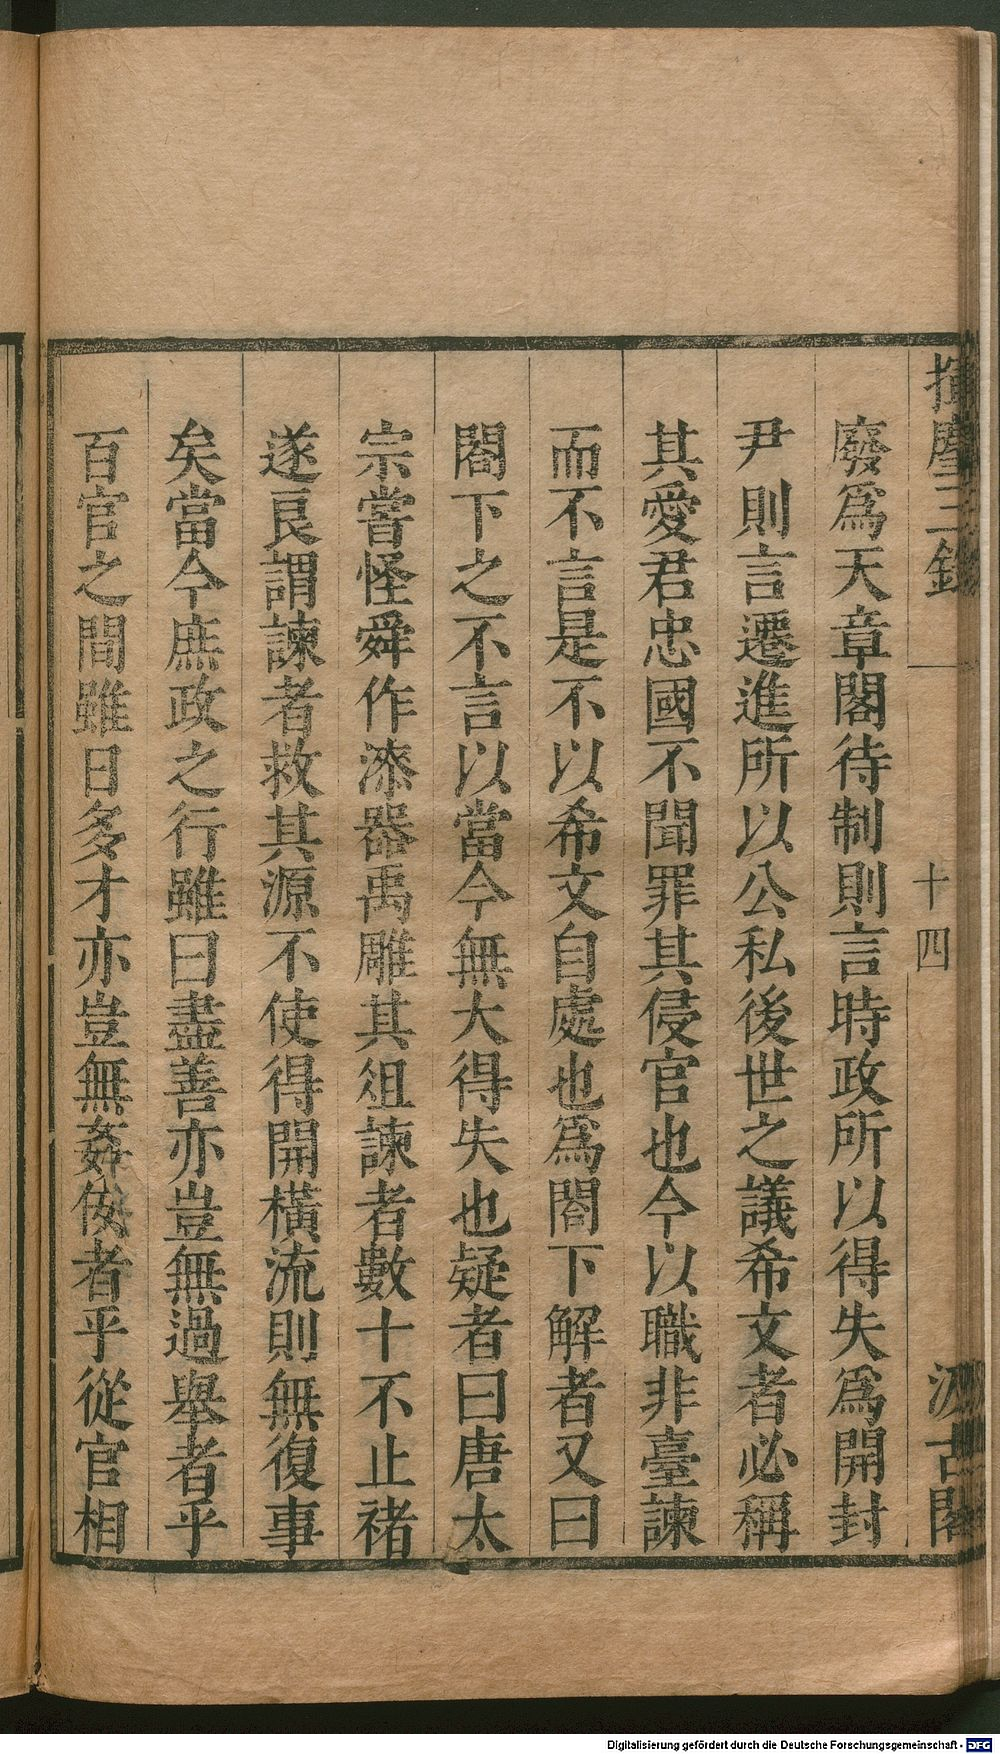 揮麈三錄
十四
汲古閣
廢爲天章閣待制則言時政所以得失爲開封
尹則言遷進所以公私後世之議希文者必稱
其愛君忠國不聞罪其侵官也今以職非臺諫
而不言是不以希文自處也爲閤下解者又曰
閤下之不言以當今無大得失也疑者曰唐太
宗嘗怪舜作漆器禹雕其俎諫者數十不止禇
遂良謂諫者救其源不使得開橫流則無復事
矣當今庶政之行雖曰盡善亦豈無過舉者乎
百官之間雖日多才亦豈無姦佞者乎從官相
Digitalisierung gefördert durch die Deutsche Forschungsgemeinschaft - DFG